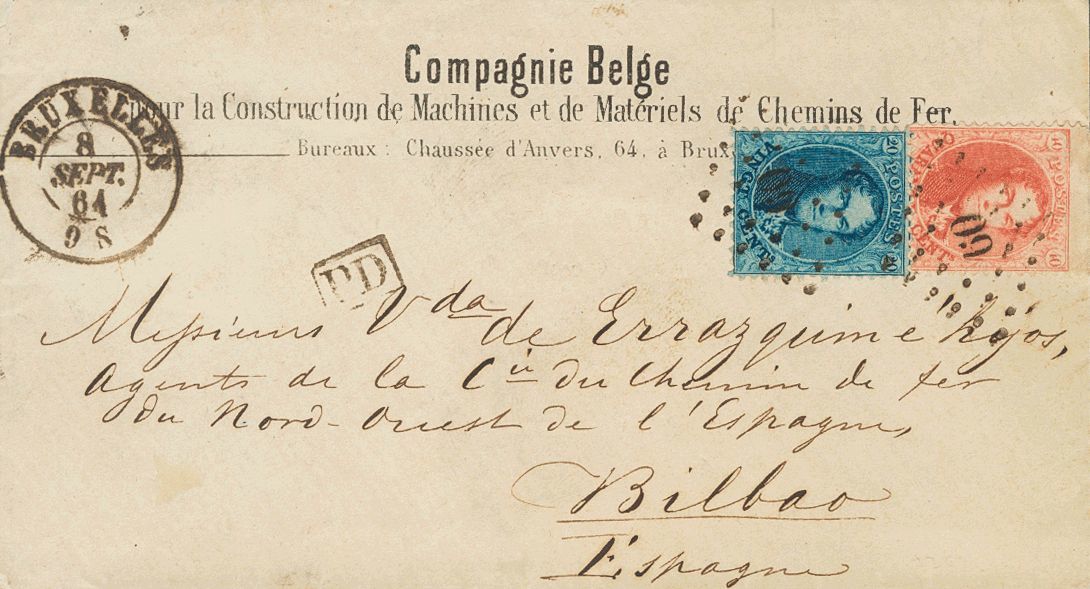 Compagnie Belge
pour la Construction de Machines et de Matériels de Chemins de Fer.
Bureaux : Chaussée d'Anvers, 64, à Brux
BRUXELLES
8
SEPT.
64
9 S
PD
VINGT CENT.
POSTES
20
20
QUARANTE CENT.
POSTES
40
40
60
Messieurs Vda de Errazquin e hijos,
Agents de la Cie du Chemin de fer
du Nord-Ouest de l'Espagne,
Bilbao
Espagne